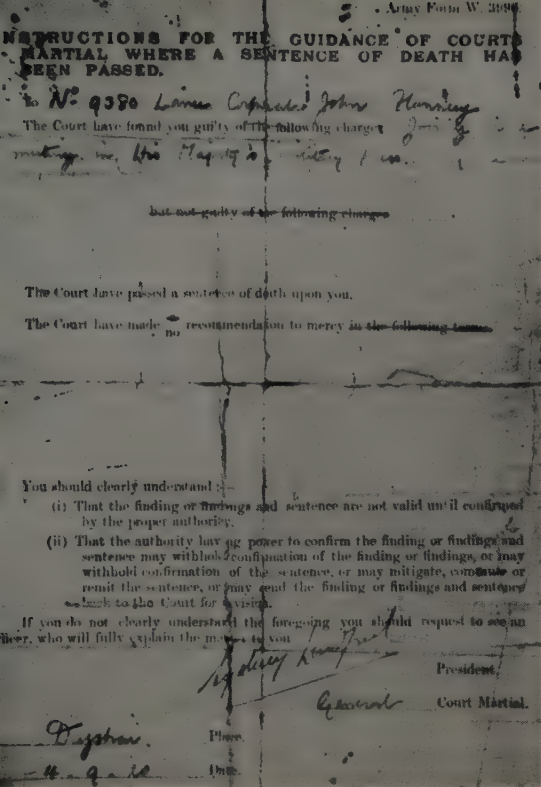 Army Form W. 3996.
INSTRUCTIONS FOR THE GUIDANCE OF COURTS
MARTIAL WHERE A SENTENCE OF DEATH HAS
BEEN PASSED.
To No 9380 Lance Corporal John
The Court have found you guilty of the following charges
mutiny in His Majesty's
but not guilty of the following charges
The Court have passed a sentence of death upon you.
The Court have made no recommendation to mercy in the following terms
You should clearly understand :—
(i) That the finding or findings and sentence are not valid until confirmed
by the proper authority.
(ii) That the authority having power to confirm the finding or findings and
sentence may withhold confirmation of the finding or findings, or may
withhold confirmation of the sentence, or may mitigate, commute or
remit the sentence, or may send the finding or findings and sentence
back to the Court for revision.
If you do not clearly understand the foregoing you should request to see an
officer, who will fully explain the matter to you
President,
General Court Martial.
Place.
4.9.20 Date.